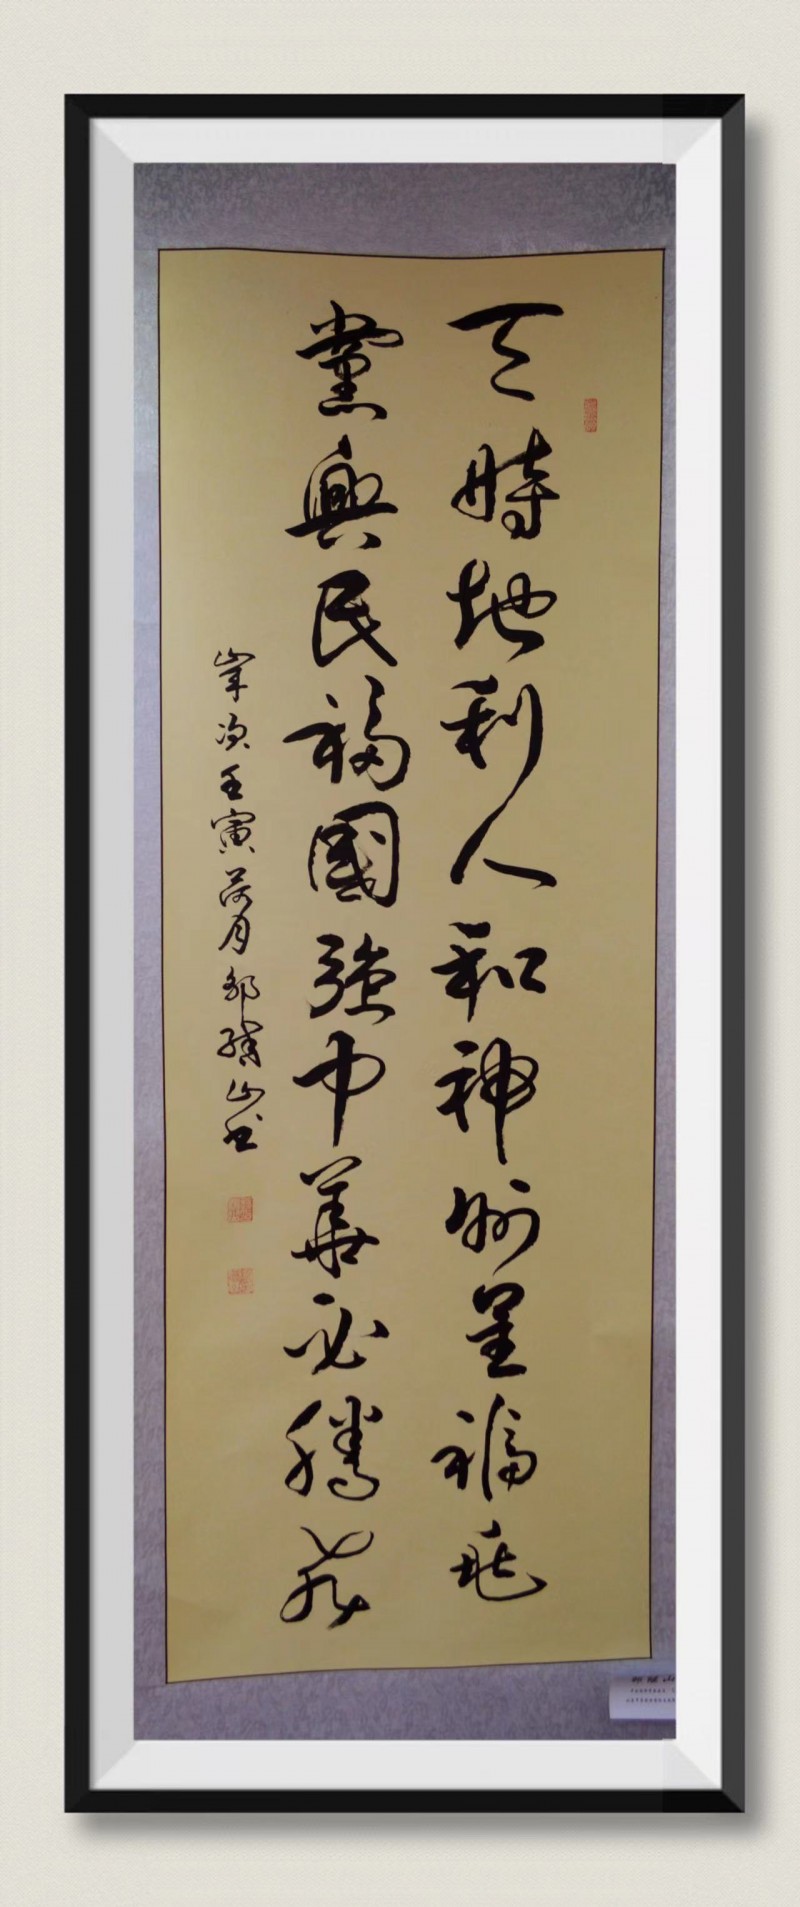 天時地利人和神州呈福
黨興民福國強中華必騰飛
歲次壬寅荷月鄒山書